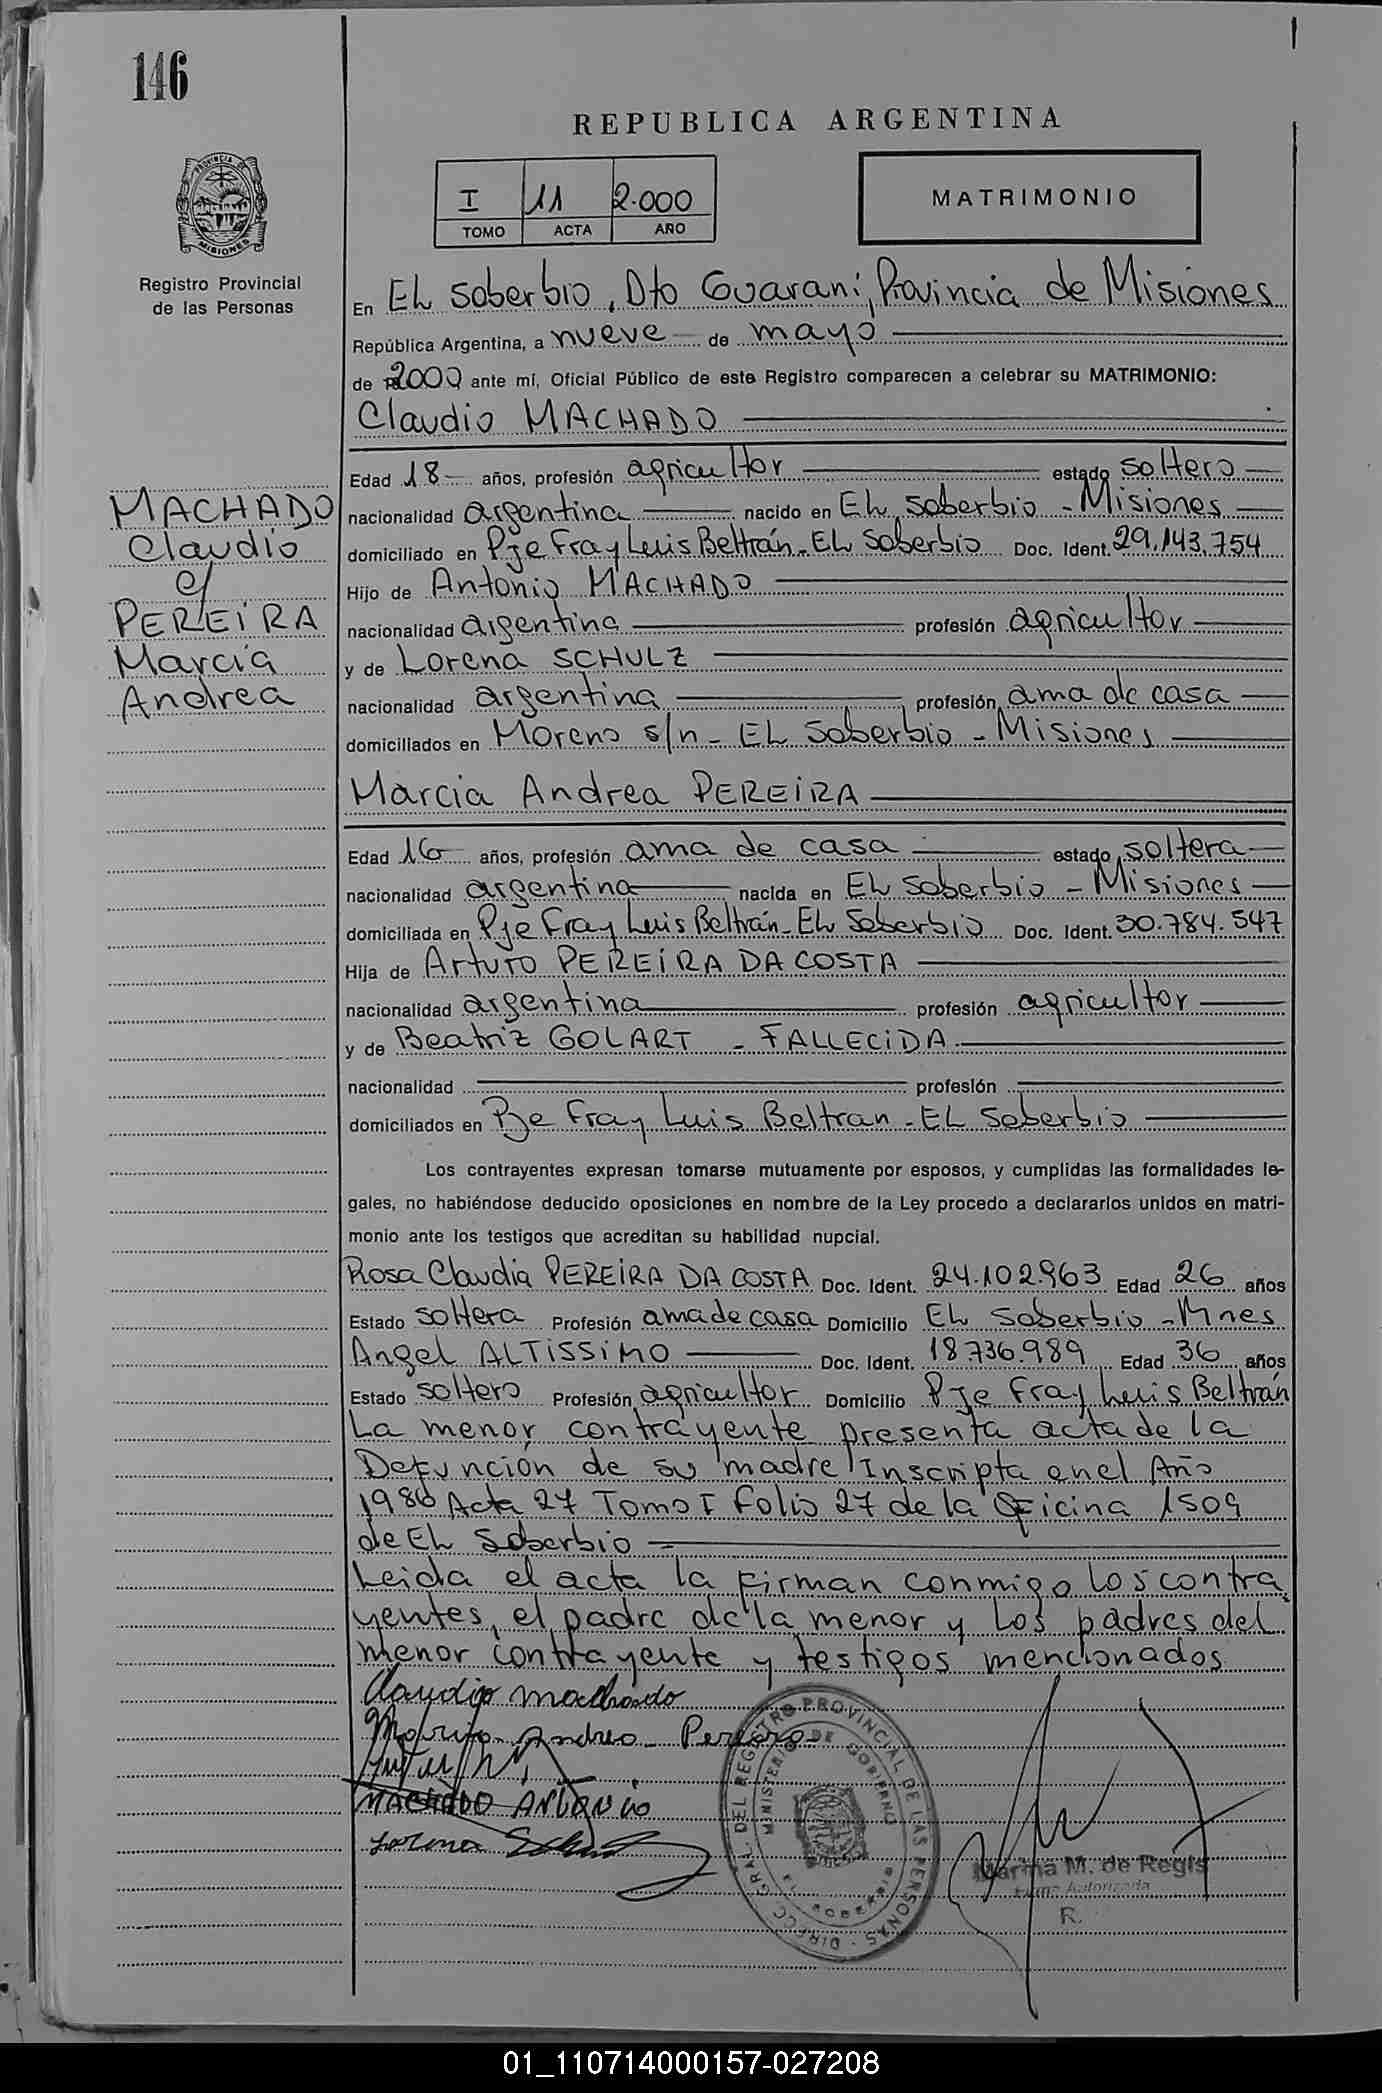 146
REPUBLICA ARGENTINA
I 11 2.000
TOMO ACTA AÑO
MATRIMONIO
PROVINCIA DE MISIONES
Registro Provincial
de las Personas
En EL Soberbio, Dto Guaraní, Provincia de Misiones
República Argentina, a nueve de mayo
de 2000 ante mí, Oficial Público de este Registro comparecen a celebrar su MATRIMONIO:
Claudio MACHADO
Edad 18 años, profesión agricultor estado soltero
nacionalidad argentina nacido en EL Soberbio - Misiones
domiciliado en Pje Fray Luis Beltrán - EL Soberbio Doc. Ident. 29.143.754
Hijo de Antonio MACHADO
nacionalidad argentina profesión agricultor
y de Lorena SCHULZ
nacionalidad argentina profesión ama de casa
domiciliados en Moreno s/n - EL Soberbio - Misiones
MACHADO
Claudio
c/
PEREIRA
Marcia
Andrea
Marcia Andrea PEREIRA
Edad 16 años, profesión ama de casa estado soltera
nacionalidad argentina nacida en EL Soberbio - Misiones
domiciliada en Pje Fray Luis Beltrán - EL Soberbio Doc. Ident. 30.784.547
Hija de Arturo PEREIRA DA COSTA
nacionalidad argentina profesión agricultor
y de Beatriz GOLART - FALLECIDA
nacionalidad profesión
domiciliados en Pje Fray Luis Beltran - EL Soberbio
Los contrayentes expresan tomarse mutuamente por esposos, y cumplidas las formalidades le-
gales, no habiéndose deducido oposiciones en nombre de la Ley procedo a declararlos unidos en matri-
monio ante los testigos que acreditan su habilidad nupcial.
Rosa Claudia PEREIRA DA COSTA Doc. Ident. 24.102.963 Edad 26 años
Estado soltera Profesión ama de casa Domicilio EL Soberbio - Mnes
Angel ALTISSIMO Doc. Ident. 18.736.989 Edad 36 años
Estado soltero Profesión agricultor Domicilio Pje Fray Luis Beltrán
La menor contrayente presenta acta de la
Defunción de su madre Inscripta en el Año
1986 Acta 27 Tomo I Folio 27 de la Oficina 1509
de EL Soberbio
Leida el acta la firman conmigo los contra
yentes, el padre de la menor y los padres del
menor contrayente y testigos mencionados
Claudio machado
Andrea Pereira
MACHADO ANTONIO
Lorena
DIRECC. GRAL. DEL REGISTRO PROVINCIAL DE LAS PERSONAS
MINISTERIO DE GOBIERNO
Marina M. de Regis
Firma Autorizada
R.
01_110714000157-027208